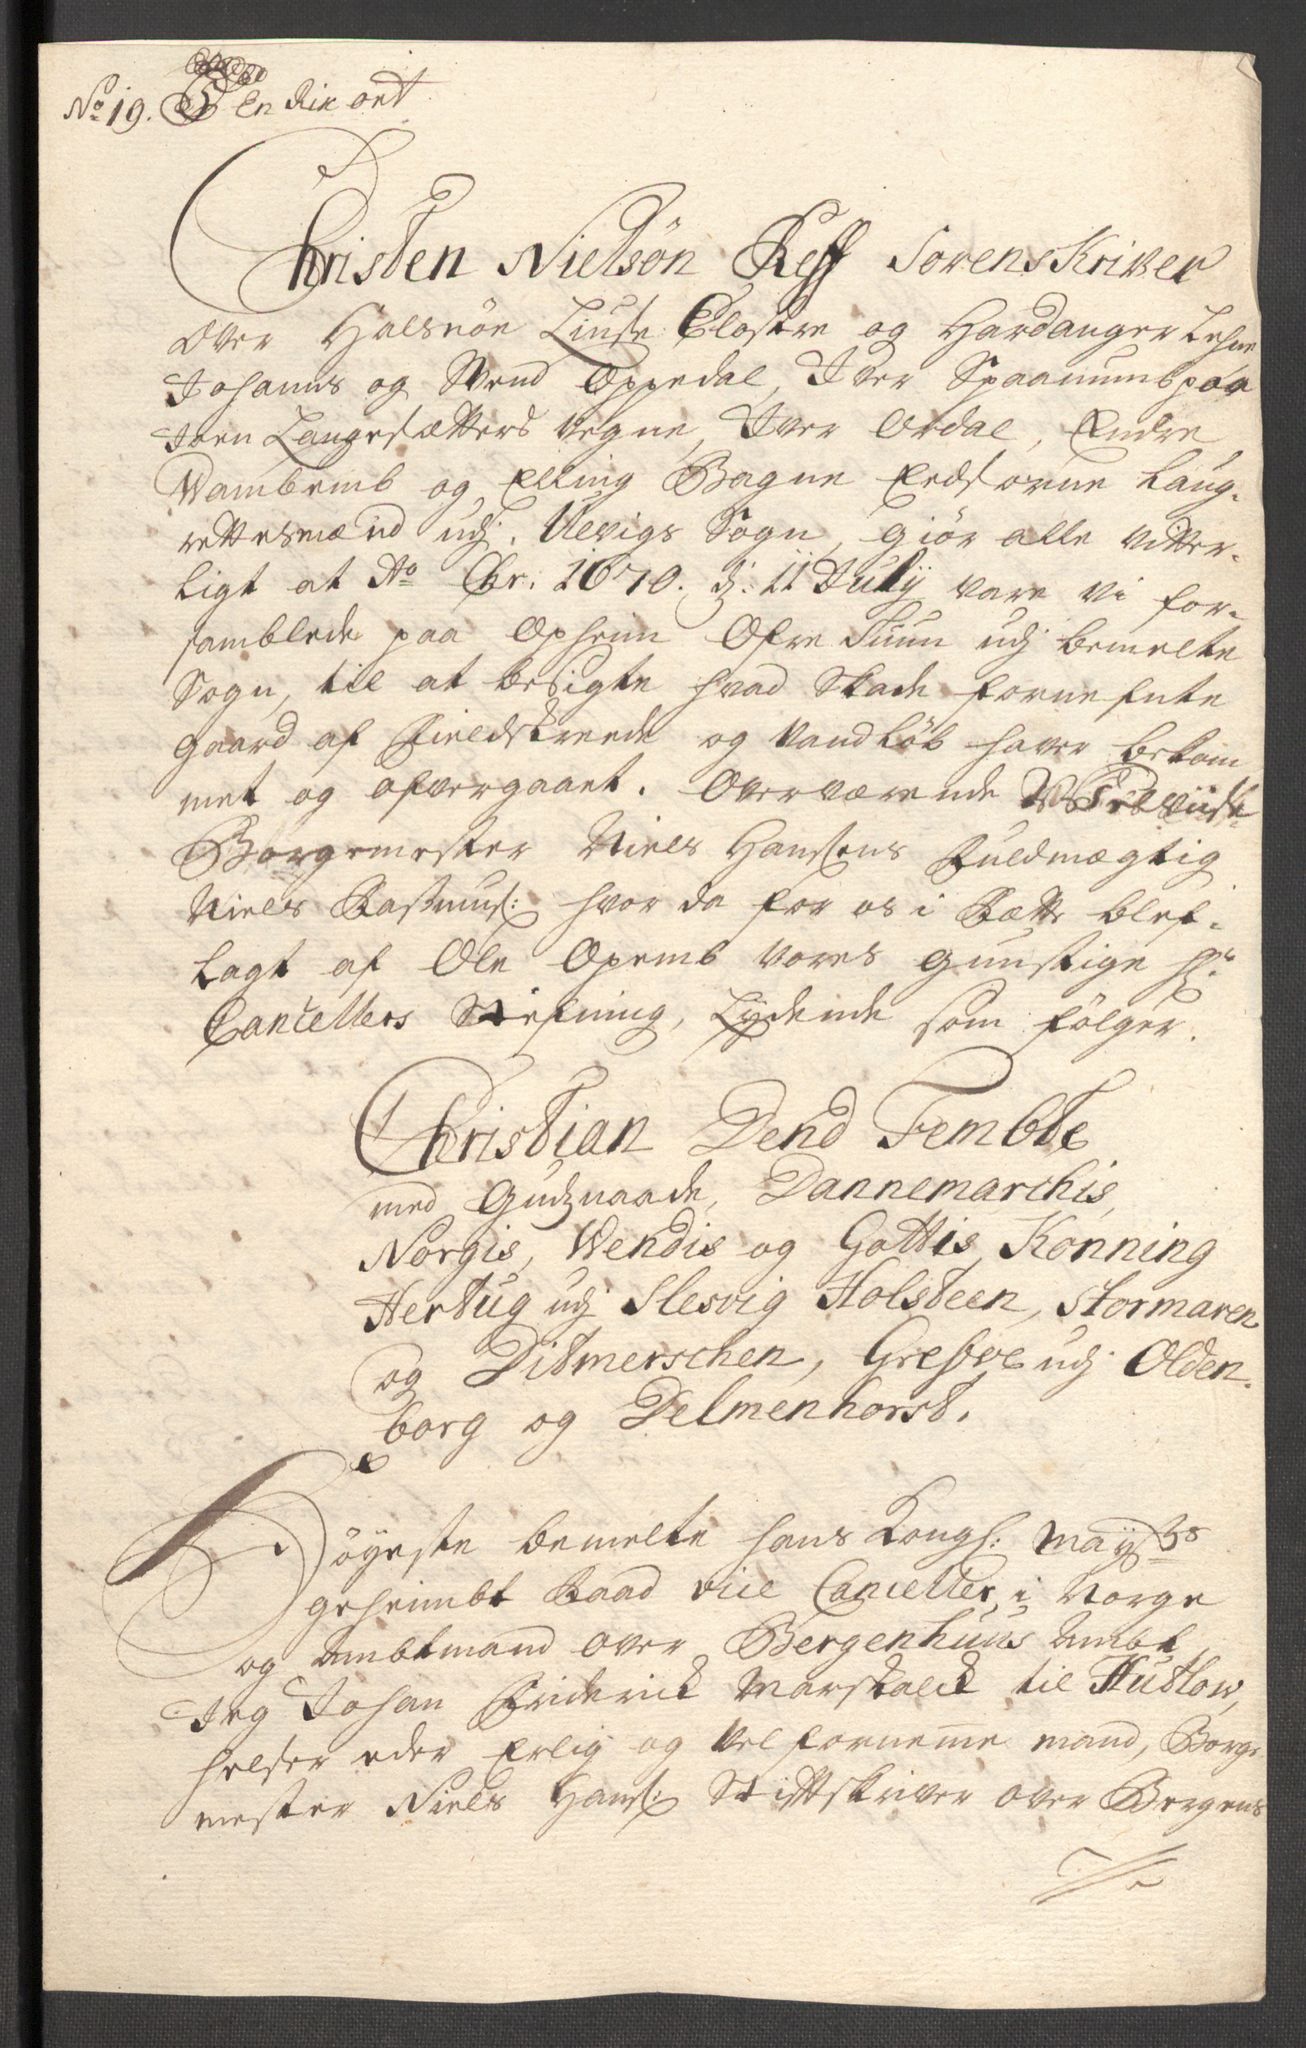 No 19. En Rix ort
Christen Nielsøn Reff Sorenskriver
over Halsnöe Liuse Clostre og Hardanger Lehne
Johannes og Svend Oppedal, Iver Spaanumb paa
Joen Langesætters vegne, Iver Ordal, Endre
Wambemb og Elling Bagne Eedsorne Laug-
rettesmænd udj Ulvigs Sogn, giör alle vitter-
ligt at Ao Chr. 1670. dj: 11 Julij vare vi for-
samblede paa Opheim Öfre Tuun udj bemelte
Sogn, til at besigte hvad Skade fornefnte
gaard af Fieldskreede og Vandlöb haver bekom
met og ofvergaaet. Overværende
Borgemester Niels Hanssens Fuldmægtig
Niels Rasmus: hvor da for os i Rætte blef
lagt af Ole Opemb vores gunstige Hr
Cancellers Stefning, Lydende som fölger.
Christian Dend Fembte
med Gudz naade, Dannemarchis,
Norgis, Wendis og Gottis Konning
Hertug udj Slesvig Holsteen, Stormaren
og Ditmerschen, Grefve udj Olden-
borg og Delmenhorst.
Höyeste bemelte hans Kongl: Mayts
geheimbt Raad vice Canceller i Norge
og Ambtmand over Bergenhuus Ambt,
Jeg Johan Friderick Marskalck til Hutlow,
helser eder Erlig og velfornemme mand, Borge
mester Niels Hans: Stiftskriver over Bergens